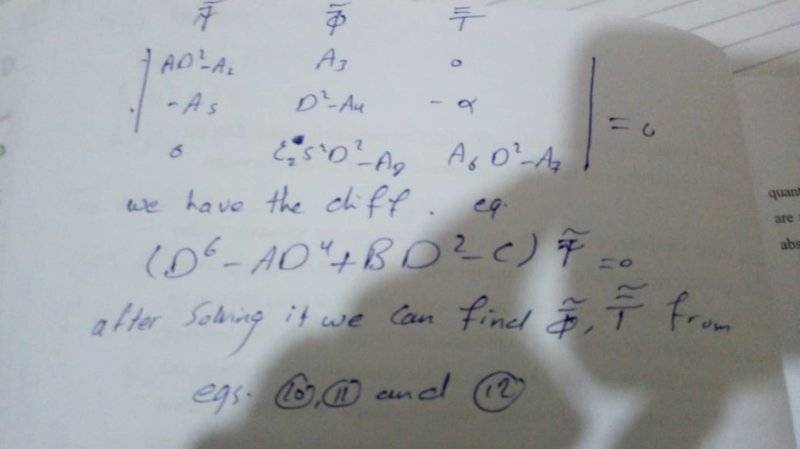 Ψ̃ Φ̃ T̃
| AD²-A₂ A₃ 0 |
| -A₅ D²-A₄ -α | = 0
| 0 ε₂s²D²-A₉ A₆D²-A₇ |
we have the diff. eq.
(D⁶-AD⁴+BD²-C) Ψ̃ = 0
after Solving it we can find Φ̃, T̃ from
eqs. ⑩,⑪ and ⑫
quant
are
abs